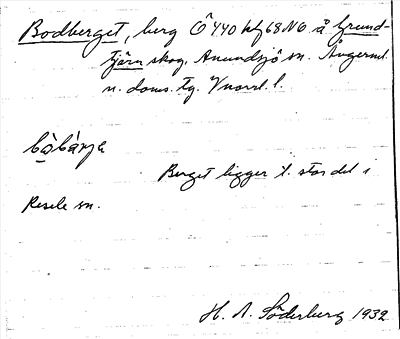 Bodberget, berg Ö 440 hf 68 NO å Grund-
tjärn skog, Anundsjö sn. Ångerml.
n. doms. tg. Vnorrl. l.
Berget ligger t. stor del i
Resele sn.
H. A. Söderberg 1932